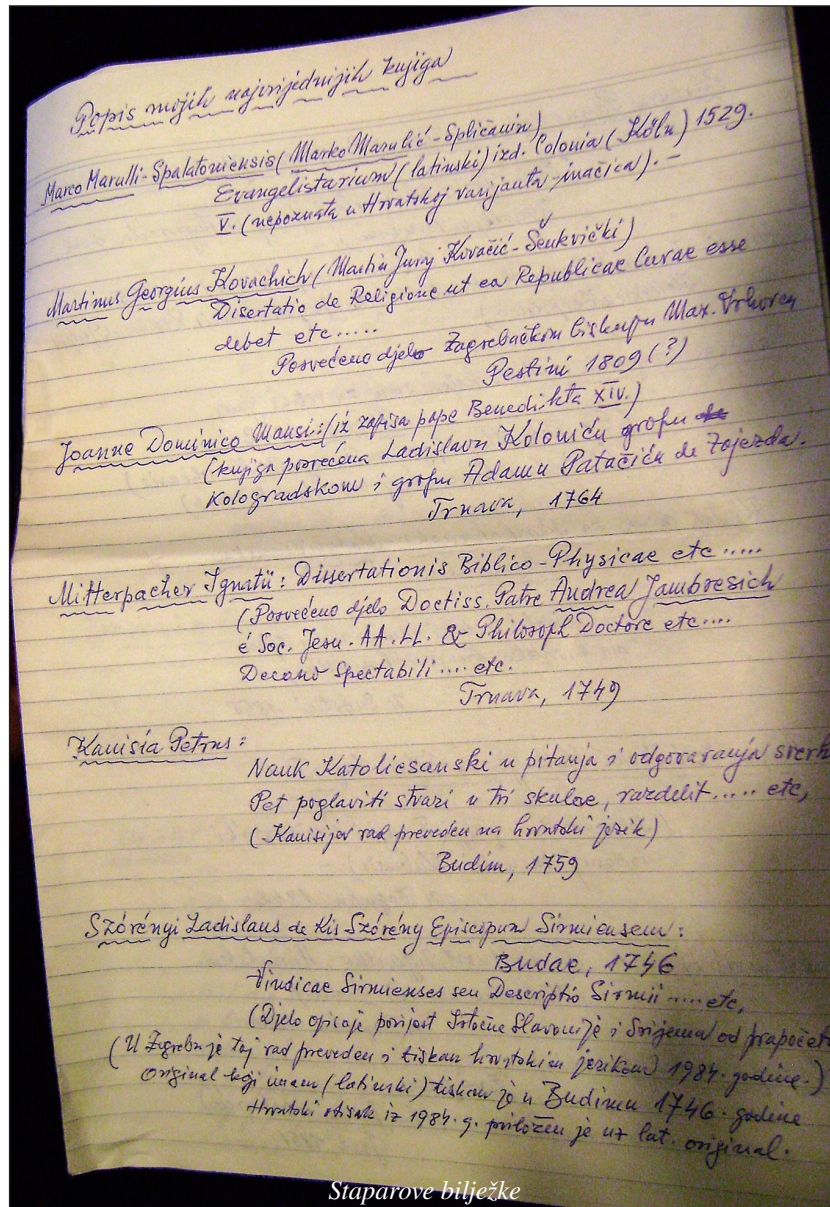 Popis mojih najvrijednijih knjiga
Marco Marulli-Spalatoniensis (Marko Marulić-Splićanin)
Evangelistarium (latinski) izd. Colonia (Köln) 1529.
V. (nepoznata u Hrvatskoj varijanta-inačica). –
Martinus Georgius Kovachich (Martin Juraj Kovačić-Šenkvički)
Disertatio de Religione ut ea Republicae Curae esse
debet etc.....
Posvećeno djelo Zagrebačkom biskupu Max. Vrhovcu
Pestini 1809 (?)
Joanne Dominico Mansi: (iz zapisa pape Benedikta XIV.)
(knjiga posvećena Ladislavu Koloniću grofu de
Kologradskom i grofu Adamu Patačiću de Zajezda.
Trnava, 1764
Mitterpacher Ignatii: Dissertationis Biblico-Physicae etc.....
(Posvećeno djelo Doctiss. Patre Andrea Jambresich
é Soc. Jesu. AA. LL. & Philosoph Doctore etc....
Decano Spectabili.... etc.
Trnava, 1749
Kanisia Petrus:
Nauk Katolicsanski u pitanja i odgovaranja sverh
Pet poglaviti stvari u tri skulae, razdelit..... etc,
(Kanisijev rad preveden na hrvatski jezik)
Budim, 1759
Szórényi Ladislaus de Kis Szórény Episcopum Sirmiensem:
Budae, 1746
Vindicae Sirmienses seu Descriptio Sirmii..... etc,
(Djelo opisuje povijest Istočne Slavonije i Srijema od prapočet
(U Zagrebu je taj rad preveden i tiskan hrvatskim jezikom 1984. godine.)
Original koji imam (latinski) tiskan je u Budimu 1746. godine
Hrvatski otisak iz 1984. g. priložen je uz lat. original.
Staparove bilježke